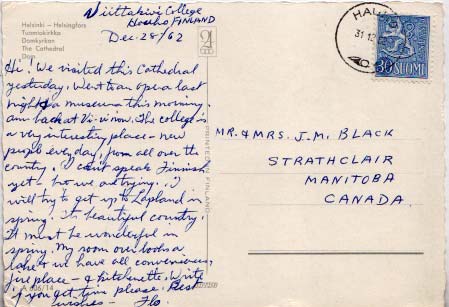 Viittakivi College
Hauho FINLAND
Dec. 28/62
Helsinki - Helsingfors
Tuomiokirkko
Domkyrkan
The Cathedral
Hi! We visited this Cathedral
yesterday. Went to an opera last
night & a museum this morning
am back at Vi- now. The college is
a very interesting place - new
people every day, from all over the
country. I can't speak Finnish
yet - but we are trying. I
will try to get up to Lapland in
spring. It's beautiful country.
It must be wonderful in
spring. My room overlooks a
lake & we have all conveniences,
fire place - & kitchenette. Write
if you get time please. Best
wishes - Flo.
A 006/14
PRINTED IN FINLAND
HAUHO
31.12
30 SUOMI
MR. & MRS. J. M. BLACK
STRATHCLAIR
MANITOBA
CANADA.